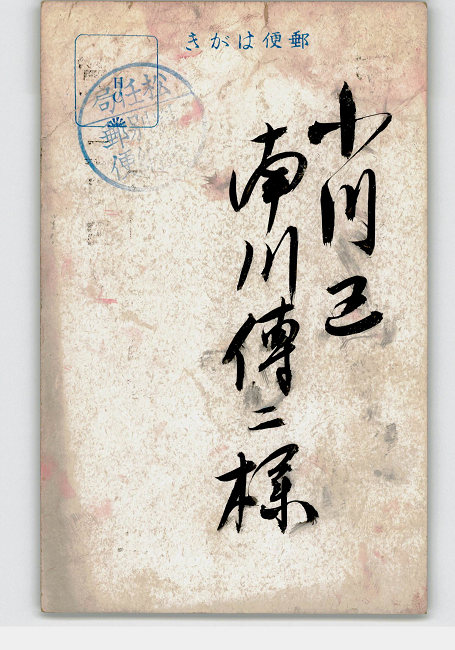 きがは便郵
小川町
南川傳二様
郵便